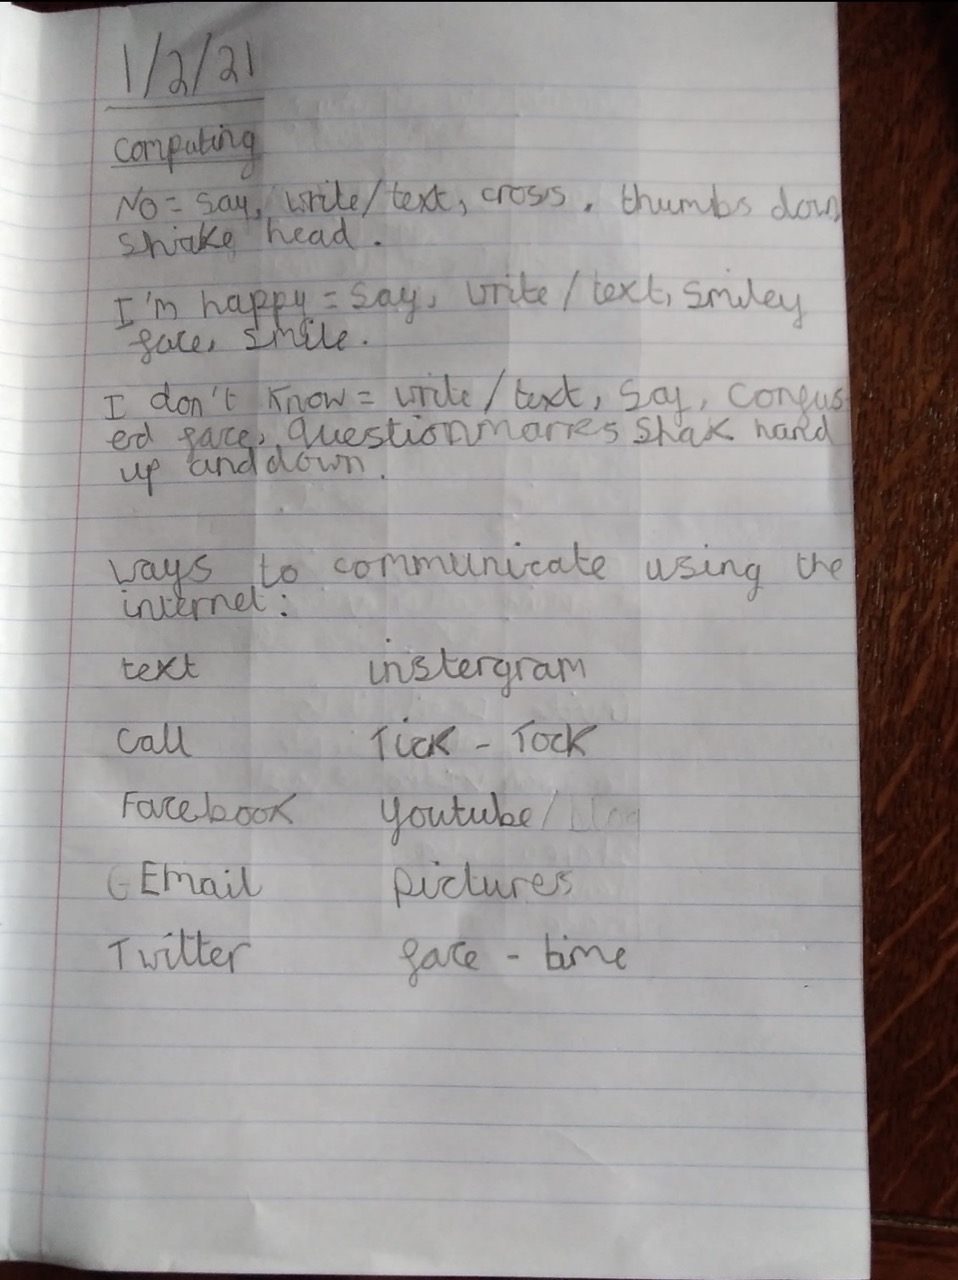 1/2/21
computing
No = say, write/text, cross, thumbs down
shake head.
I'm happy = say, write/text, smiley
face, smile.
I don't know = write/text, say, confus
ed face, question marks shak hand
up and down.
ways to communicate using the
internet:
text instergram
call Tick - Tock
Facebook youtube/
GEmail pictures
Twitter face - time